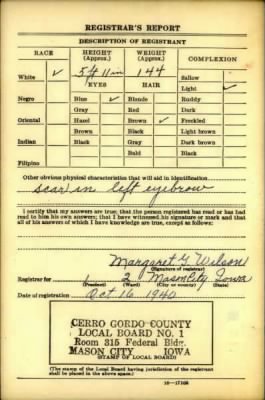 REGISTRAR'S REPORT
DESCRIPTION OF REGISTRANT
RACE HEIGHT (Approx.) WEIGHT (Approx.) COMPLEXION
White ✓ 5 ft 11 in 144 Sallow
EYES HAIR Light ✓
Negro Blue ✓ Blonde Ruddy
Gray Red Dark
Oriental Hazel Brown ✓ Freckled
Brown Black Light brown
Indian Black Gray Dark brown
Bald Black
Filipino
Other obvious physical characteristic that will aid in identification
scar in left eyebrow
I certify that my answers are true; that the person registered has read or has had
read to him his own answers; that I have witnessed his signature or mark and that
all of his answers of which I have knowledge are true, except as follows:
Margaret G. Wilson
(Signature of registrar)
Registrar for 1 2 Mason City, Iowa
(Precinct) (Ward) (City or county) (State)
Date of registration Oct 16, 1940
CERRO GORDO COUNTY
LOCAL BOARD NO. 1
Room 315 Federal Bldg.
MASON CITY IOWA
(STAMP OF LOCAL BOARD)
(The stamp of the Local Board having jurisdiction of the registrant
shall be placed in the above space.)